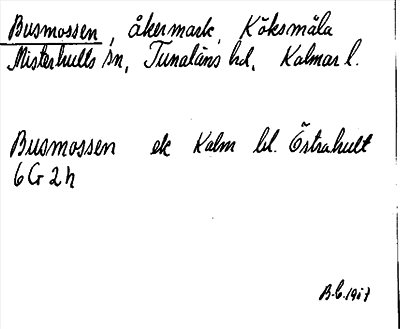 Busmossen, åkermark, Köksmåla
Misterhults sn, Tunaläns hd, Kalmar l.
Busmossen ek Kalm bl. Östrahult
6 G 2 h